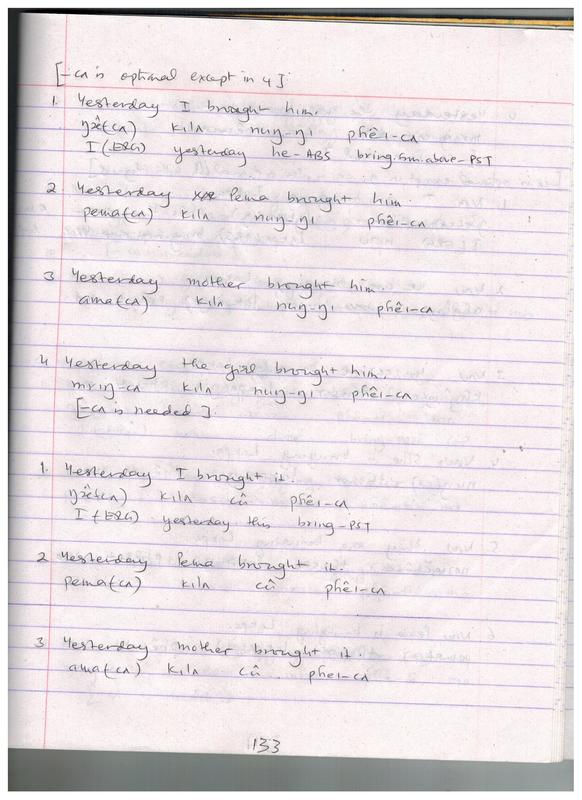 [-cʌ is optional except in 4].
1. Yesterday I brought him.
ŋɤ̂(cʌ) kilʌ nuŋ-ŋi phêi-cʌ
I (ERG) yesterday he-ABS bring.fm.above-PST
2. Yesterday Pema brought him.
pema(cʌ) kilʌ nuŋ-ŋi phêi-cʌ
3 Yesterday mother brought him.
ama(cʌ) kilʌ nuŋ-ŋi phêi-cʌ
4 Yesterday the girl brought him.
mriŋ-cʌ kilʌ nuŋ-ŋi phêi-cʌ
[-cʌ is needed].
1. Yesterday I brought it.
ŋɤ̂(cʌ) kilʌ cû phêi-cʌ
I (ERG) yesterday this bring-PST
2 Yesterday Pema brought it.
pema(cʌ) kilʌ cû phêi-cʌ
3 Yesterday mother brought it
ama(cʌ) kilʌ cû. phei-cʌ
133